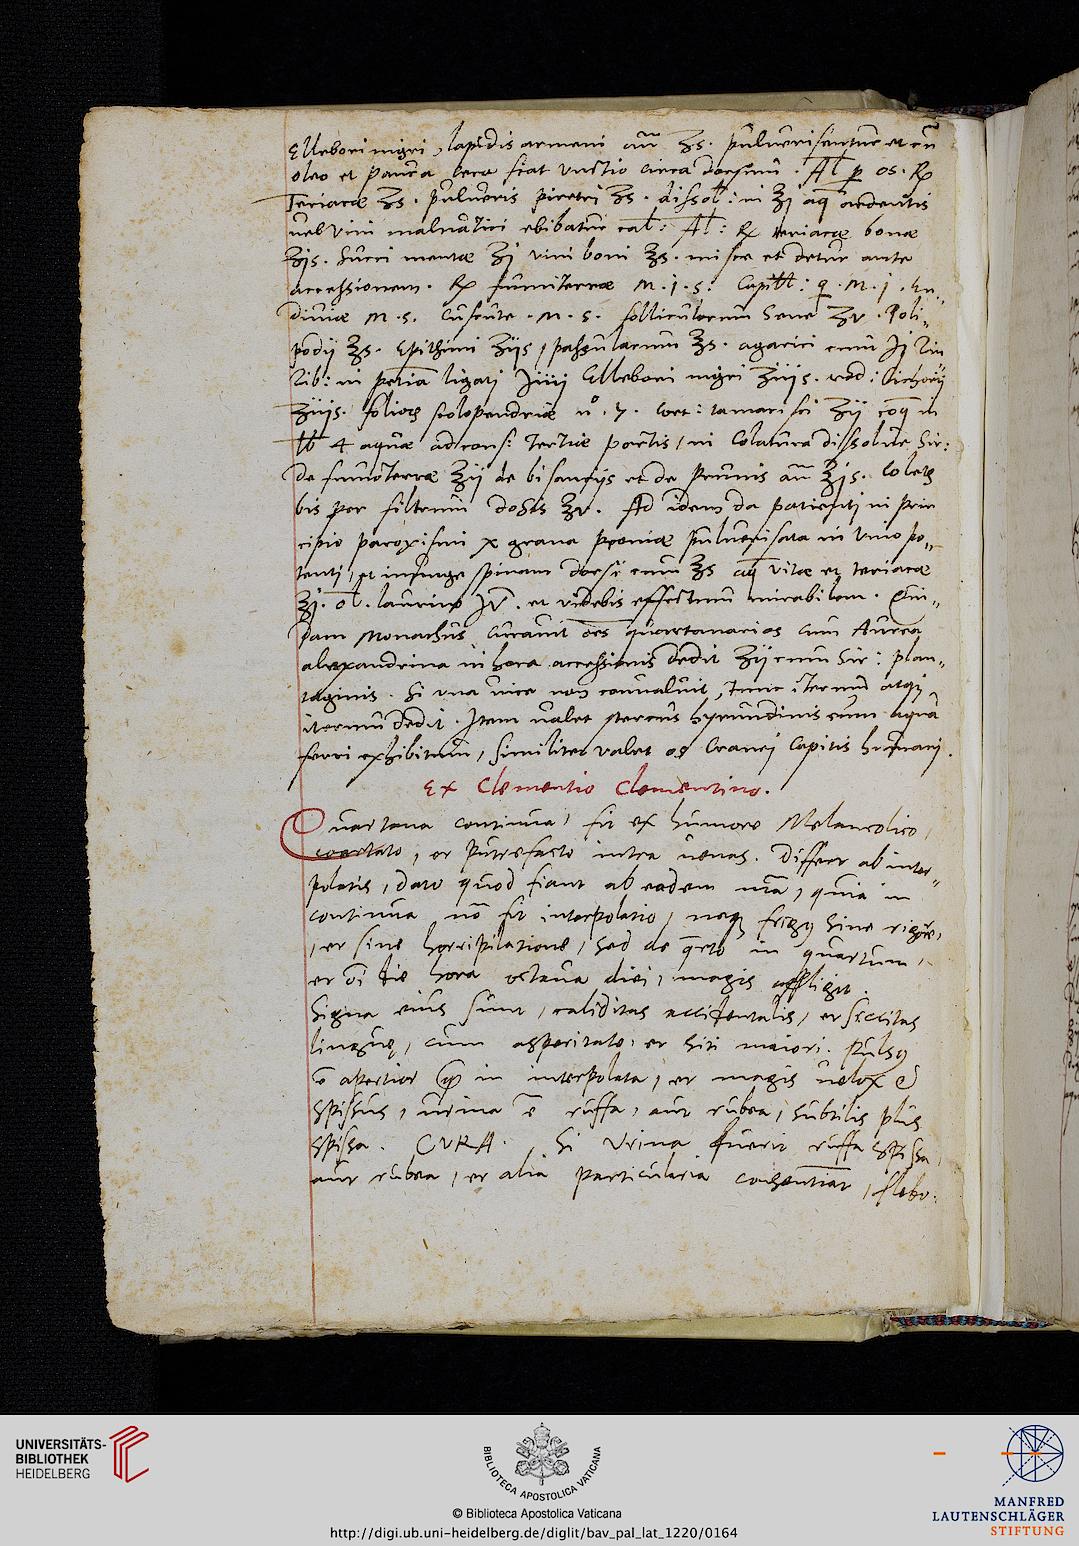 Ellebori nigri, lapidis armeni añ ʒs. pulverisentur et cū
oleo et pauca cera fiat unctio circa dorsum. Al p os. ℞
Teriacæ ʒs. pulveris piretri ʒs. dissol: in ʒj aq ardentis
vel vini malvatici ebibatur cal: Al: ℞ teriacæ bonæ
ʒjs. Succi mentæ ʒj vini boni ʒs. misce et detur ante
accessionem. ℞ fumiterræ M.j.s: Capill: q. M.j. En-
diviæ M.s. Cuscute. M.s. folliculorum Sene ʒv. Poli-
podij ʒs. Epithimi ʒijs, passularum ʒs. agarici cum
in petia ligati Ellebori nigri ʒiijs. rad: Cichorij
ʒiijs. folior scolopendriæ nº. 7. Cort: tamarisci ʒij coq in
lb 4 aquæ ad cons: Tertiæ partis, in Colatura dissolve Sir:
de fumoterræ ʒij de bisantijs et de Prunis añ ʒjs. Coletur
bis per filtrum dosis ʒv. Ad idem da patienti in prin
cipio paroxismi x grana pæoniæ pulverisata in vino po-
tenti, et inunge spinam dorsi cum ʒs aq vitæ et teriacæ
ʒj. ol. laurino et videbis effectum mirabilem. Qui-
dam Monachus curavit oēs quartanarios cum Aurea
alexandrina in hora accessionis dedit ʒij cum Sir: plan-
taginis. Si una vice non convaluit, tunc iterum atq
iterum dedit. Item valet stercus hyrundinis cum aqua
ferri exhibitum, similiter valet os Cranei Capitis humani.
Ex Clementio Clementino.
Quartana continua, fit ex humore Melancolico,
coartato, et putrefacto intra venas. Differt ab inter-
polatis, dato quod fiant ab eadem mā, quia in
continua nō fit interpolatio, neq frigus sine rigore,
, et sine horripilatione, sed de q̄rto in quartum,
et oī die hora octava diei, magis affligit.
Signa eius sunt, caliditas accidentalis, et siccitas
linguę, cum asperitate, et siti maiori. Pulsus
ē apertior q̄ in interpolata, et magis velox &
spissus, urina ē ruffa, aut rubea, subtilis plus
spissa. CURA. Si Urina fuerit ruffa spissa,
aut rubea, et alia particularia consentiāt, flebo:
UNIVERSITÄTS-
BIBLIOTHEK
HEIDELBERG
BIBLIOTECA APOSTOLICA VATICANA
© Biblioteca Apostolica Vaticana
http://digi.ub.uni-heidelberg.de/diglit/bav_pal_lat_1220/0164
MANFRED
LAUTENSCHLÄGER
STIFTUNG